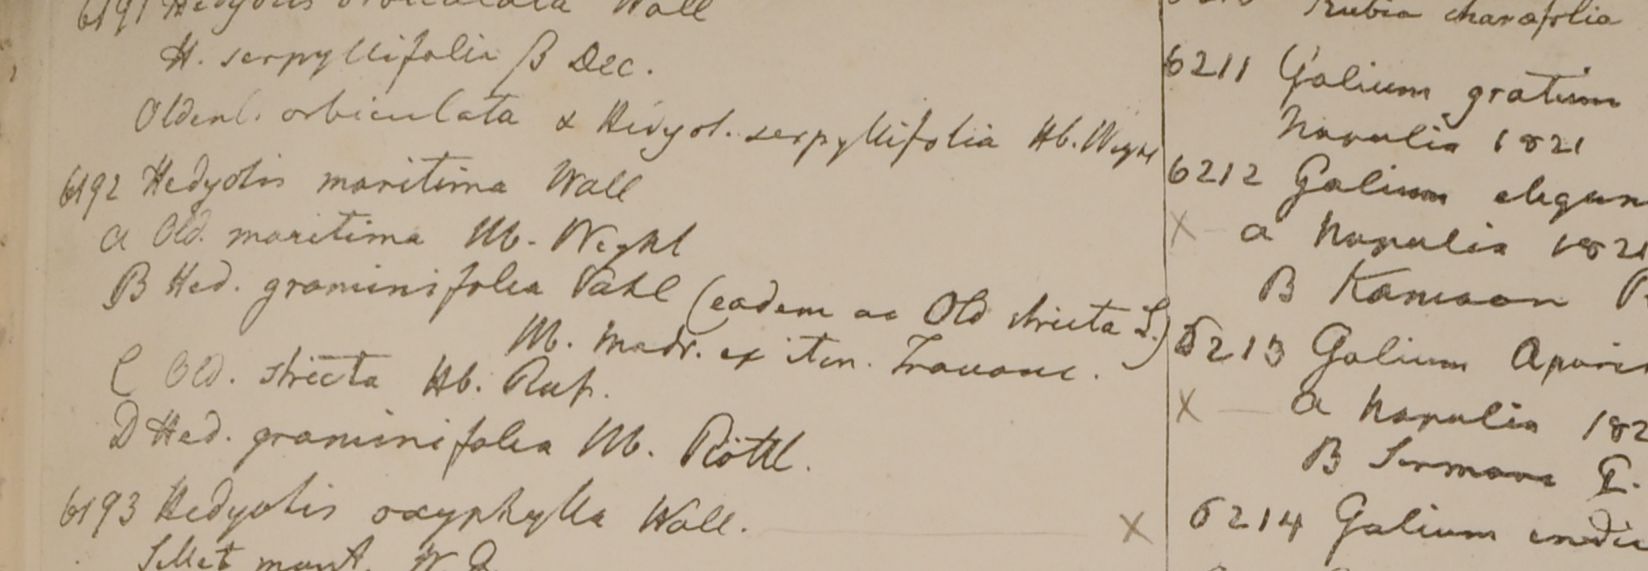 6191 Hedyotis orbiculata Wall
H. serpyllifolia β Dec.
Oldenl. orbiculata & Hedyot. serpyllifolia Hb. Wight
6192 Hedyotis maritima Wall
a Old. maritima Hb. Wight
B Hed. graminifolia Vahl (eadem ac Old stricta L.)
Hb. Madr. ex itin. Travanc.
C Old. stricta Hb. Rup.
D Hed. graminifolia Hb. Röttl.
6193 Hedyotis oxyphylla Wall. X
Sillet mont.
Rubia charæfolia
6211 Galium gratum
Napalia 1821
6212 Galium elegan
X a Napalia 1821
B Kamaon
6213 Galium Apari
X a Napalia 182
B Sirmore
6214 Galium